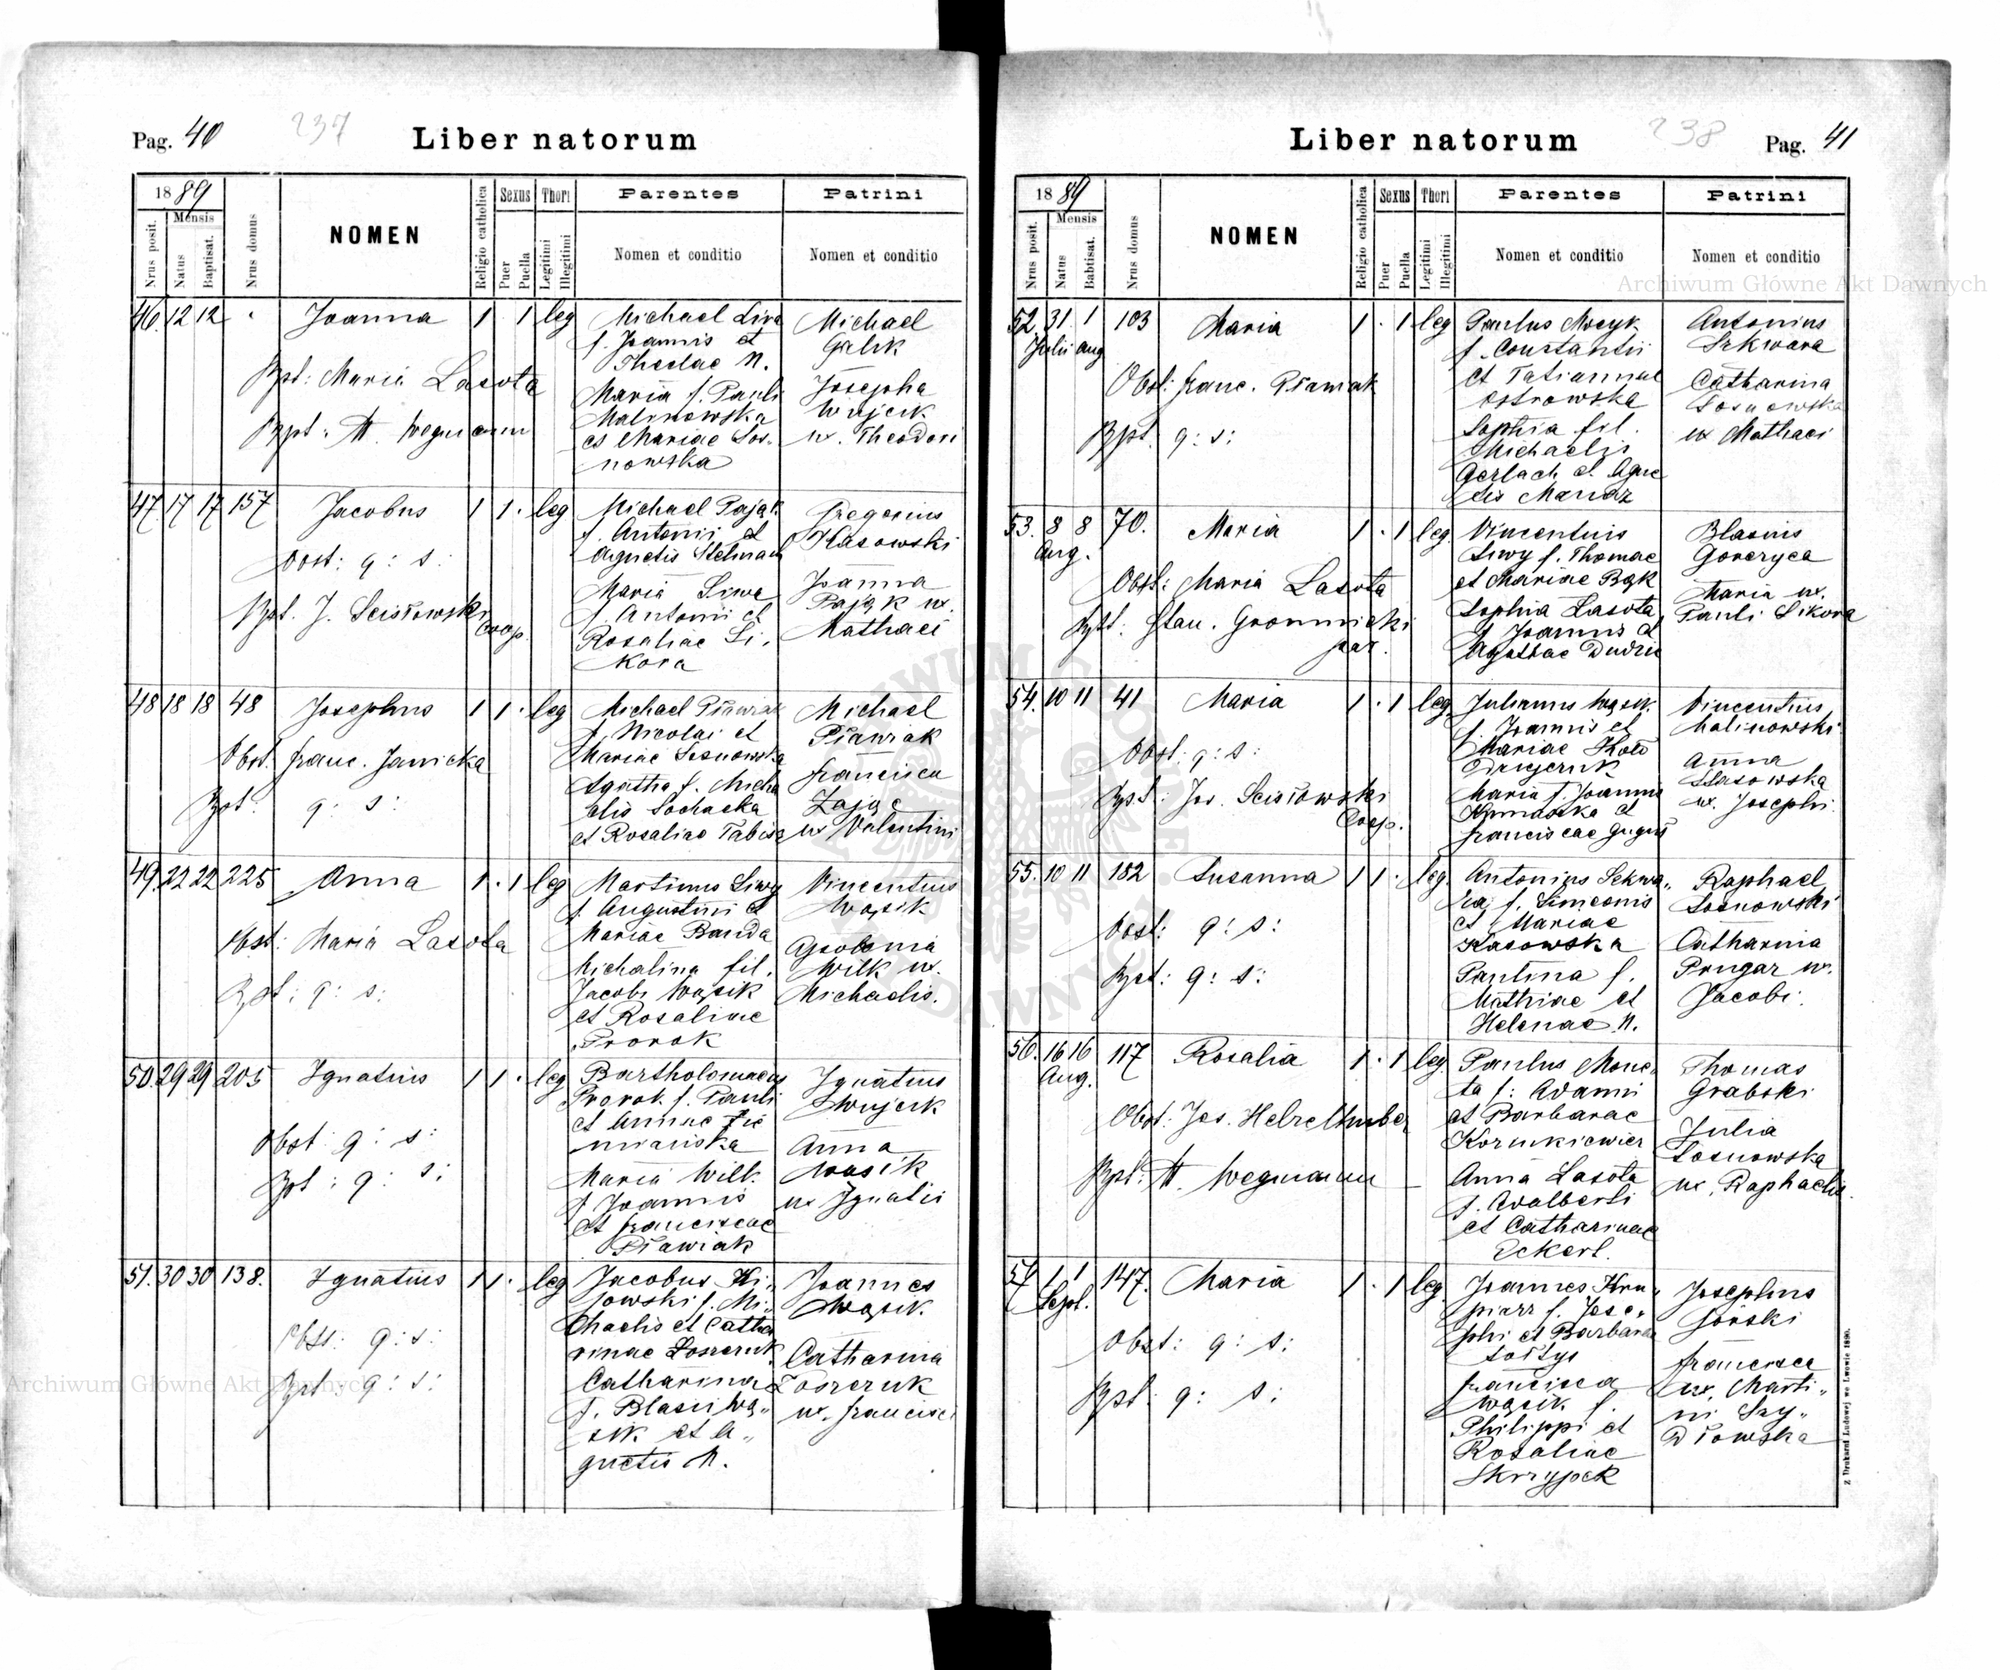 Pag. 40
237
Liber natorum
1889
Nrus posit.
Mensis
Natus
Baptisat.
Nrus domus
NOMEN
Religio catholica
Sexus
Puer
Puella
Thori
Legitimi
Illegitimi
Parentes
Nomen et conditio
Patrini
Nomen et conditio
46. 12 12 Joanna 1 1 leg
Bpt: Maria Lasota
Bpt: M. Wegmann
Michael Liwa
f. Joannis et
Theclae N.
Maria f. Pauli
Malinowska
et Mariae Sos-
nowska
Michael
Galik
Josepha
Wujcik
ux. Theodori
47. 17 17 157 Jacobus 1 1 . leg
Obst: q: s:
Bpt. J. Scisłowski
Coop.
Michael Pająk
f. Antonii et
Agnetis Stelmach
Maria Siwe
f. Antonii et
Rosaliae Si-
kora
Gregorius
Kasowski
Joanna
Pająk ux.
Mathaei
48 18 18 48 Josephus 1 1 . leg
Obst. Franc. Janicka
Bpt: q: s:
Michael Pławiak
f. Nicolai et
Mariae Sosnowska
Agatha f. Micha
elis Sochacka
et Rosaliae Tabisz
Michael
Pławiak
Francisca
Zając
ux Valentini
49. 22 22 225 Anna 1 . 1 leg
Obst: Maria Lasota
Bpt: q: s:
Martinus Siwy
f. Augustini et
Mariae Banda
Michalina fil.
Jacobi Wąsik
et Rosaliae
Prorok
Vincentius
Wąsik
Apolonia
Wilk ux.
Michaelis.
50. 29 29 205 Ignatius 1 1 . leg
Obst: q: s:
Bpt: q: s:
Bartholomaeus
Prorok f. Pauli
et Annae Zie
mianska
Maria Wilk
f. Joannis
et Franciscae
Pławiak
Ignatius
Wujcik
Anna
Wąsik
ux Ignatii
51. 30 30 138. Ignatius 1 1 . leg
Obst: q: s:
Bpt q: s:
Jacobus Ki-
jowski f. Mi-
chaelis et Catha
rinae Łoszczuk
Catharina
f. Blasii Wą-
sik et A-
gnetis N.
Joannes
Wąsik.
Catharina
Łoszczuk
ux. Francisci
Liber natorum
238
Pag. 41
1889
Nrus posit.
Mensis
Natus
Babtisat.
Nrus domus
NOMEN
Religio catholica
Sexus
Puer
Puella
Thori
Legitimi
Illegitimi
Parentes
Nomen et conditio
Patrini
Nomen et conditio
52. 31 1 103 Maria 1 . 1 leg
Julii Aug
Obst: Franc. Pławiak
Bpt. q: s:
Paulus Mocyk
f. Constantii
et Tatiannae
Ostrowska
Sophia fil.
Michaelis
Gerlach et Agne
tis
Antonius
Sekwara
Catharina
Sosnowska
ux Mathaei
53. 8 8 70. Maria 1 . 1 leg.
Aug.
Obst: Maria Lasota
Bpt: Stan. Gromnicki
par.
Vincentius
Siwy f. Thomae
et Mariae Bąk
Sophia Lasota
f. Joannis et
Agathae Dudzic
Blasius
Goryca
Maria ux.
Pauli Sikora
54. 10 11 41 Maria 1 . 1 leg
Obst: q: s:
Bpt: Jos. Scisłowski
Coop.
Julianus Wąsik
f. Joannis et
Mariae Koło
dziejczuk
Maria f. Joannis
et
Franciscae
Vincentius
Malinowski
Anna
Stasowska
ux. Josephi
55. 10 11 182 Susanna 1 1 . leg.
Obst: q: s:
Bpt: q: s:
Antonius Sekwa-
ra f. Simeonis
et Mariae
Kasowska
Paulina f.
Mathiae et
Helenae N.
Raphael
Sosnowski
Catharina
Prugar ux.
Jacobi.
56. 16 16 117 Rosalia 1 . 1 leg
Aug.
Obst: Jos.
Bpt: M. Wegmann
Paulus Mone-
ta f: Adami
et Barbarae
Kornikiewicz
Anna Lasota
f. Adalberti
et Catharinae
Eckert.
Thomas
Grabski
Julia
Sosnowska
ux. Raphaelis.
57. 1 1 147. Maria 1 . 1 leg
Sept.
Obst: q: s:
Bpt: q: s:
Joannes Kru-
piarz f. Jose-
phi et Barbarae
Sołtys
Francisca
Wąsik f.
Philippi et
Rosaliae
Skrzypek
Josephus
Górski
Francisca
ux. Marti-
ni Szy-
dłowska
Z Drukarni Ludowej we Lwowie 1890.
Archiwum Główne Akt Dawnych
Archiwum Główne Akt Dawnych